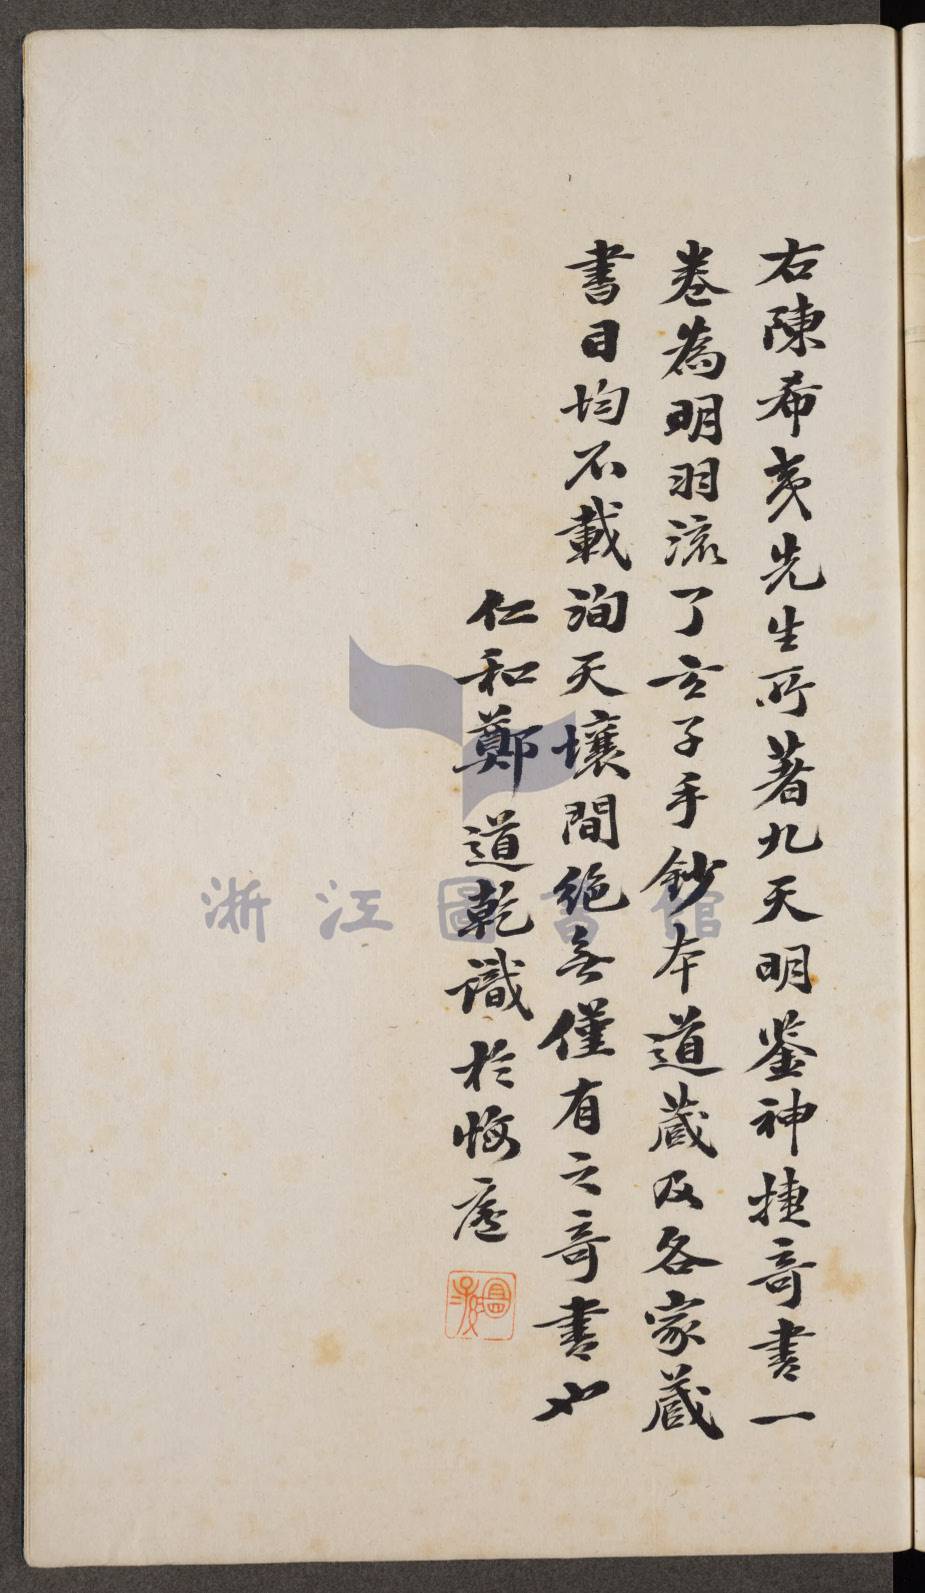 右陳希夷先生所著九天明鉴神捷奇書一
卷為明羽流了玄子手鈔本道藏及各家藏
書目均不載洵天壤間絕無僅有之奇書也
仁和鄭道乾識於悔廬
浙江圖書館